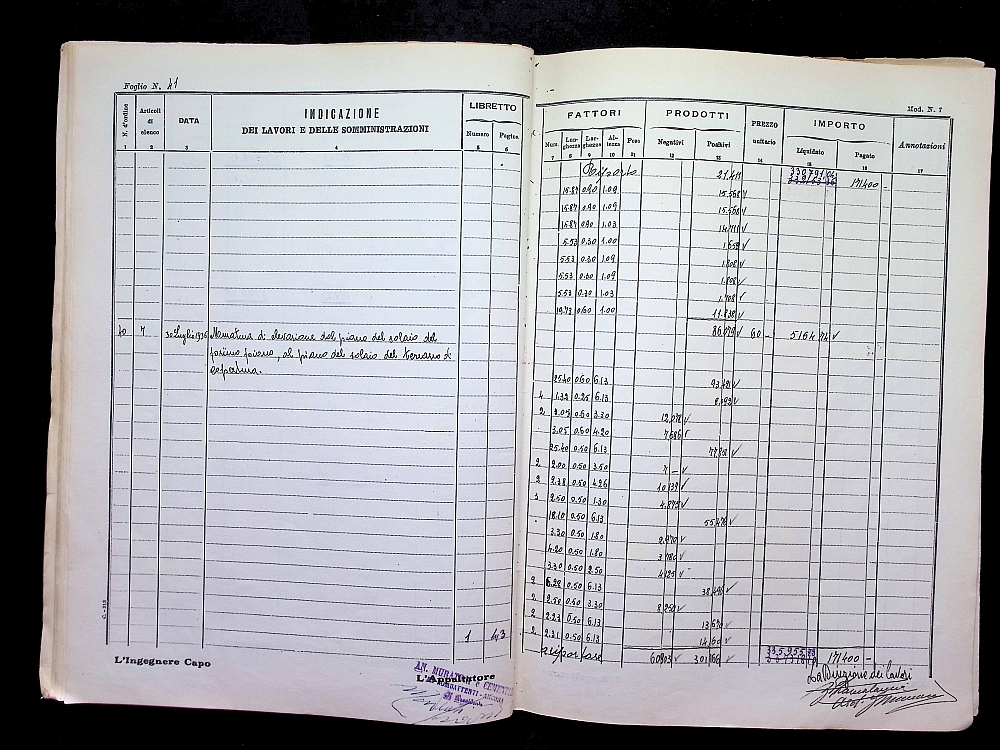 Foglio N. 41
Mod. N. 7
N. d'ordine
Articoli di elenco
DATA
INDICAZIONE
DEI LAVORI E DELLE SOMMINISTRAZIONI
LIBRETTO
Numero Pagina
FATTORI
PRODOTTI
PREZZO unitario
IMPORTO
Annotazioni
Num. Lunghezza Larghezza Altezza Peso
Negativi Positivi
Liquidato Pagato
1 2 3 4 5 6
7 8 9 10 11 12 13 14 15 16 17
Riporto 21.411 171400 –
15.87 0.90 1.09 15.568
15.87 0.90 1.09 15.568
15.87 0.90 1.03 14.711
5.53 0.30 1.00 1.659
5.53 0.30 1.09 1.808
5.53 0.30 1.09 1.808
5.53 0.30 1.03 1.708
19.73 0.60 1.00 11.838
86.079 60 – 5164 74
10 7 30 Luglio 1936 Muratura di elevazione dal piano del solaio del
primo piano, al piano del solaio del terrazzo di
copertura.
25.40 0.60 6.13 93.421
4 1.32 0.25 6.13 8.092
2 3.05 0.60 3.30 12.078
3.05 0.60 4.20 7.686
25.40 0.50 6.13
2 2.00 0.50 3.50 7 –
2 2.38 0.50 4.26 10.139
3 2.50 0.50 1.30 4.875
18.10 0.50 6.13 55.476
3.30 0.50 1.80 2.970
4.20 0.50 1.80 3.780
3.30 0.50 2.50 4.125
2 6.28 0.50 6.13 38.496
2 2.50 0.50 3.30 8.250
2 2.23 0.50 6.13 13.670
2 2.31 0.50 6.13 14.160
1 43
a riportare 60903 301166 171400 –
L'Ingegnere Capo
L'Appaltatore
La Direzione dei Lavori